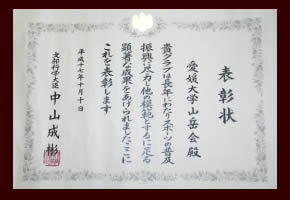 表彰状
愛媛大学山岳会殿
貴クラブは長年にわたりスポーツの普及
振興に尽力し他の模範とするに足る
顕著な成果をあげられましたここに
これを表彰します
平成十七年十月十日
文部科学大臣 中山成彬